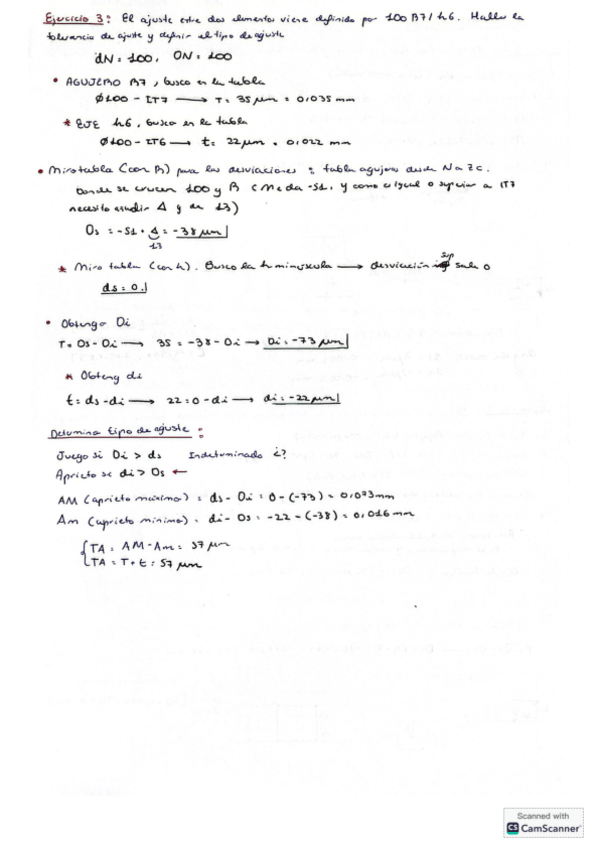 Ejercicio 3: El ajuste entre dos elementos viene definido por 100 R7/h6. Hallar la
tolerancia de ajuste y definir el tipo de ajuste
dN = 100, DN = 100
• AGUJERO R7, busco en la tabla
Ø100 - IT7 → T = 35 μm = 0,035 mm
* EJE h6, busco en la tabla
Ø100 - IT6 → t = 22 μm = 0,022 mm
• Miro tabla (con R) para las desviaciones: tabla agujeros desde N a ZC.
Donde se crucen 100 y R (Me da -51, y como es igual o superior a IT7
necesito añadir Δ y da 13)
Ds = -51 + Δ = -38 μm
13
* Miro tabla (con h). Busco la h minuscula → desviación sup sale 0
ds = 0
• Obtengo Di
T = Ds - Di → 35 = -38 - Di → Di = -73 μm
* Obteng di
t = ds - di → 22 = 0 - di → di = -22 μm
Determina tipo de ajuste:
Juego si Di > ds Indeterminado ¿?
Aprieto se di > Ds ←
AM (aprieto maximo) = ds - Di = 0 - (-73) = 0,073 mm
Am (aprieto minimo) = di - Ds = -22 - (-38) = 0,016 mm
TA = AM - Am = 57 μm
TA = T + t = 57 μm
Scanned with
CS CamScanner